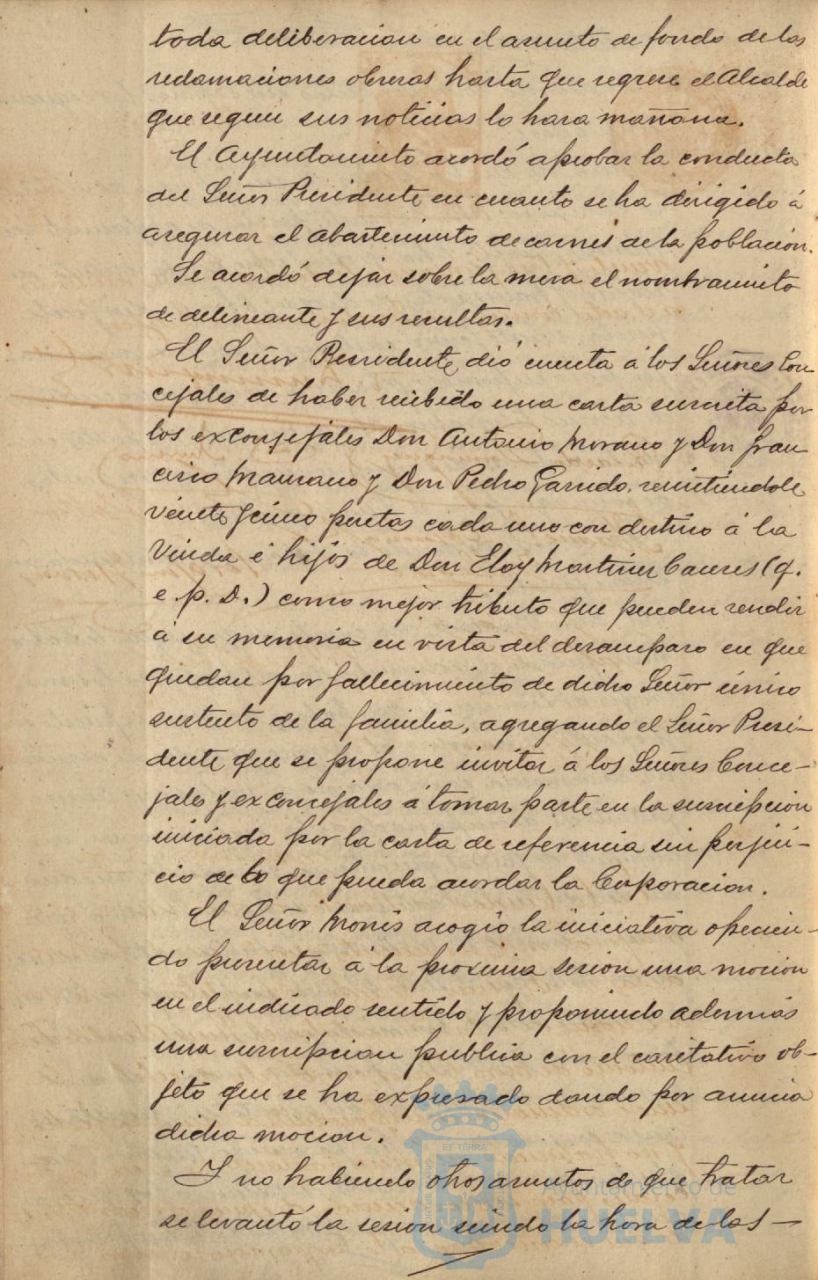 toda deliberacion en el asunto de fondo de las
reclamaciones obreras hasta que regrese el Alcalde
que segun sus noticias lo hara mañana.
El Ayuntamiento acordó aprobar la conducta
del Señor Presidente en cuanto se ha dirigido á
asegurar el abastecimiento de carnes de la población.
Se acordó dejar sobre la mesa el nombramiento
de delineante y sus resultas.
El Señor Presidente, dió cuenta á los Señores Con
cejales de haber recibido una carta suscrita por
los exconsejales Don Antonio Morano y Don Fran
cisco y Don Pedro Garrido, remitiendole
veinte y cinco pesetas cada uno con destino á la
Viuda é hijos de Don Eloy Martinez Caceres (q.
e. p. D.) como mejor tributo que pueden rendir
á su memoria en vista del desamparo en que
quedan por fallecimiento de dicho Señor único
sustento de la familia, agregando el Señor Presi-
dente que se propone invitar á los Señores Conce-
jales y ex concejales á tomar parte en la suscripción
iniciada por la carta de referencia sin perjui-
cio de lo que pueda acordar la Corporacion.
El Señor Monis acogio la iniciativa ofrecien-
do presentar á la proxima sesion una mocion
en el indicado sentido y proponiendo además
una suscripcion publica con el caritativo ob-
jeto que se ha expresado dando por anuncia
dicha mocion.
Y no habiendo otros asuntos de que tratar
se levantó la sesion siendo la hora de las —
ET TERRA
Ayuntamiento de
HUELVA